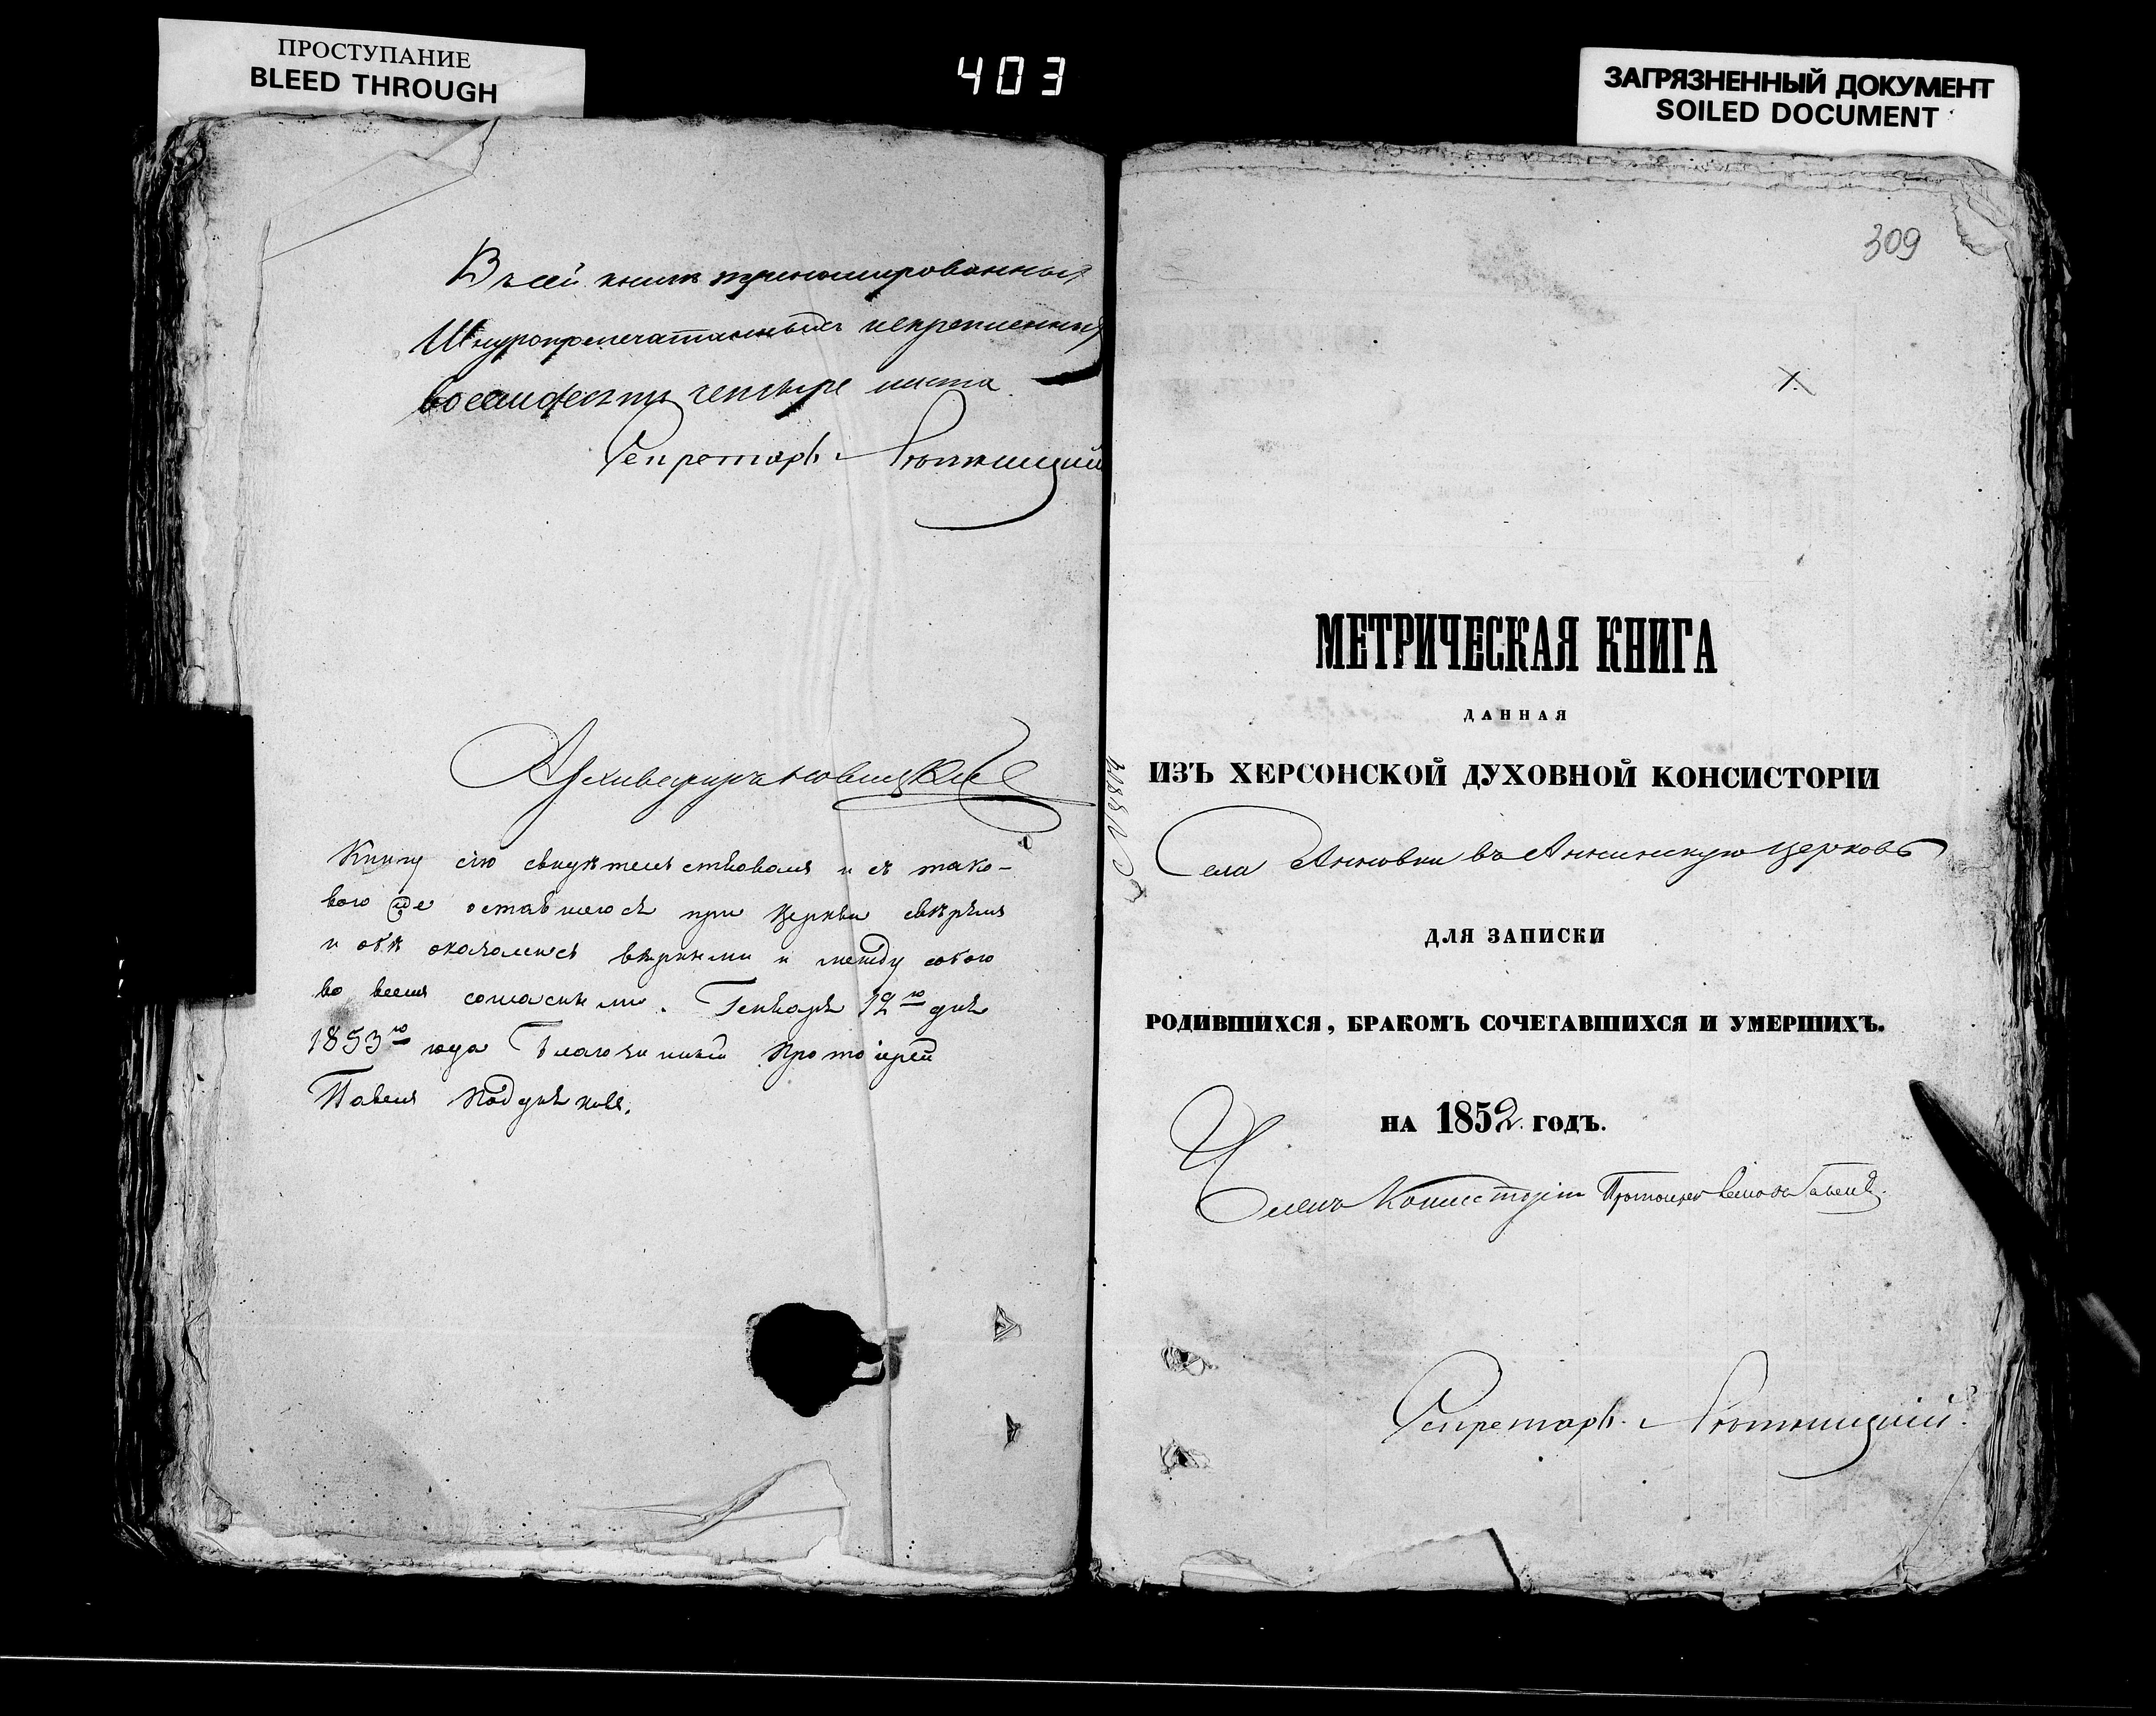 ПРОСТУПАНИЕ
BLEED THROUGH
403
ЗАГРЯЗНЕННЫЙ ДОКУМЕНТ
SOILED DOCUMENT
Въ сей книгѣ пренумерованныхъ
Шнуропропечатанныхъ искрепленныхъ
восемдесятъ четыре листа
Секретарь
Книгу сію свидѣтельствовалъ и съ тако-
вою же оставшеюсѧ при Церкви свѣрялъ
и обѣ оказались вѣрными и между собою
во всемъ согласными. Генваря 12го дня
1853го года Благочинный Протоіерей
Павелъ
309
1.
МЕТРИЧЕСКАЯ КНИГА
ДАННАЯ
ИЗЪ ХЕРСОНСКОЙ ДУХОВНОЙ КОНСИСТОРІИ
Села Анновки въ Аннинскую церковь
ДЛЯ ЗАПИСКИ
РОДИВШИХСЯ, БРАКОМЪ СОЧЕТАВШИХСЯ И УМЕРШИХЪ.
НА 1852 ГОДЪ.
Членъ Консисторіи Протоіерей
Секретарь